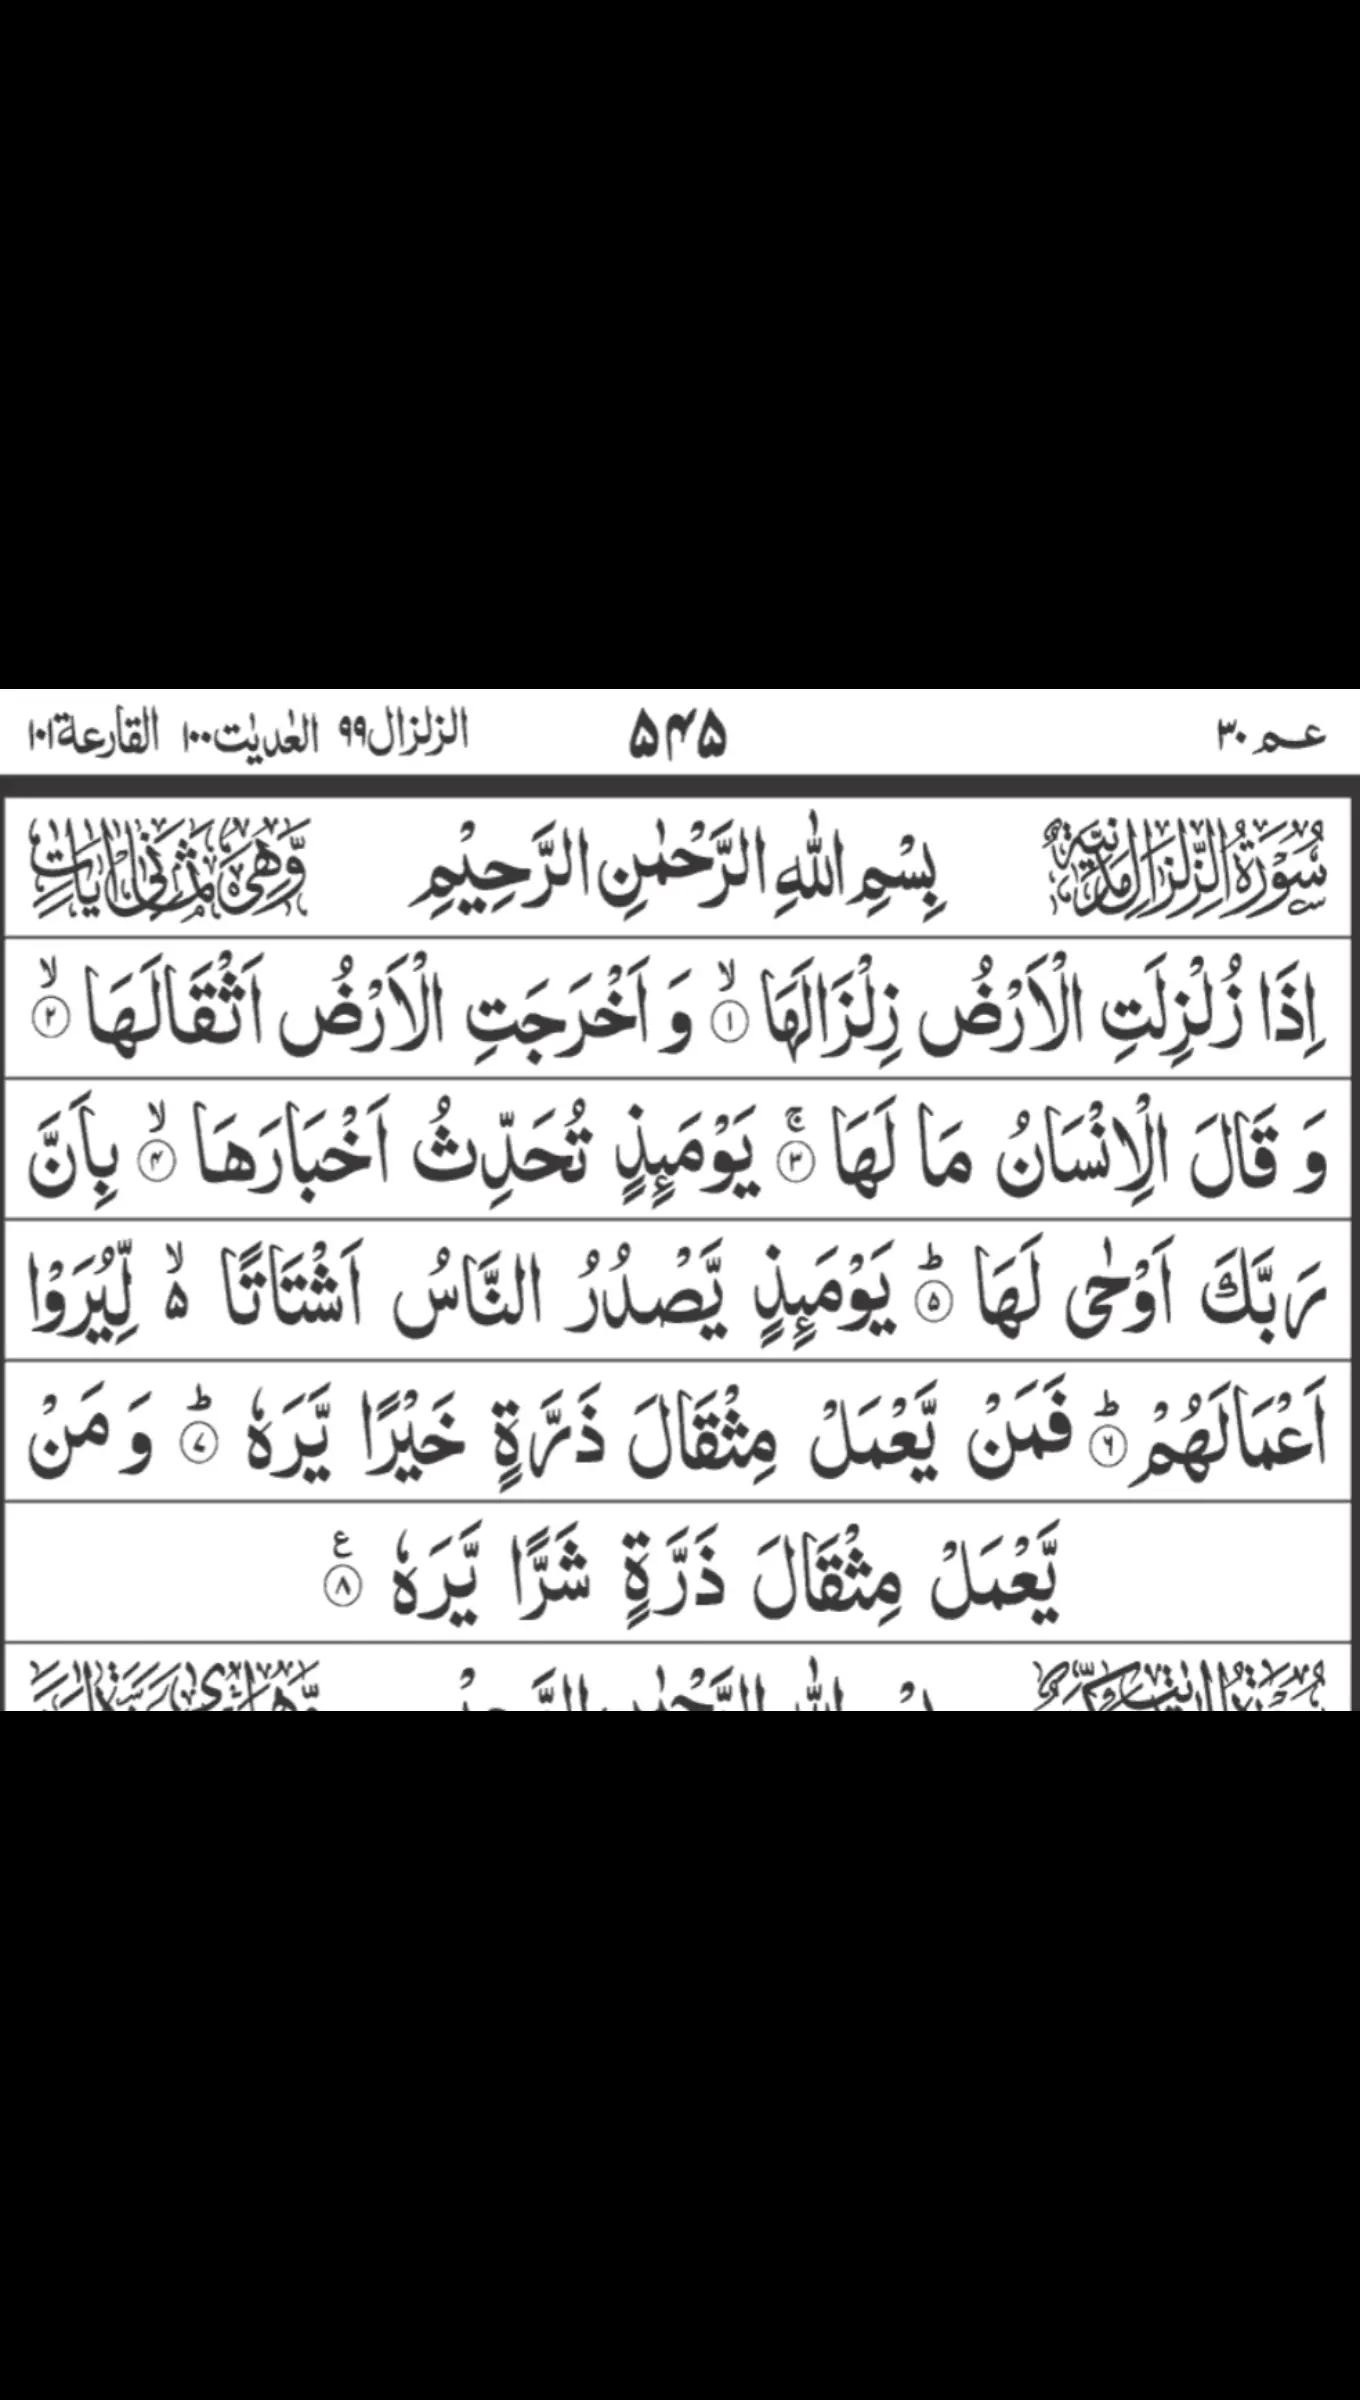 عـم ٣٠ ۵۴۵ الزلزال ٩٩ العٰديٰت ١٠٠ القارعة ١٠١
سُوْرَةُ الزِّلْزَالِ مَدَنِيَّةٌ بِسْمِ اللّٰهِ الرَّحْمٰنِ الرَّحِيْمِ وَّهِيَ ثَمٰنِيْ اٰيَاتٍ
اِذَا زُلْزِلَتِ الْاَرْضُ زِلْزَالَهَا ۙ﴿۱﴾ وَ اَخْرَجَتِ الْاَرْضُ اَثْقَالَهَا ۙ﴿۲﴾
وَ قَالَ الْاِنْسَانُ مَا لَهَا ۚ﴿۳﴾ يَوْمَئِذٍ تُحَدِّثُ اَخْبَارَهَا ۙ﴿۴﴾ بِاَنَّ
رَبَّكَ اَوْحٰى لَهَا ؕ﴿۵﴾ يَوْمَئِذٍ يَّصْدُرُ النَّاسُ اَشْتَاتًا ۵ۙ لِّيُرَوْا
اَعْمَالَهُمْ ؕ﴿۶﴾ فَمَنْ يَّعْمَلْ مِثْقَالَ ذَرَّةٍ خَيْرًا يَّرَهٗ ؕ﴿۷﴾ وَ مَنْ
يَّعْمَلْ مِثْقَالَ ذَرَّةٍ شَرًّا يَّرَهٗ ﴿۸﴾ ع